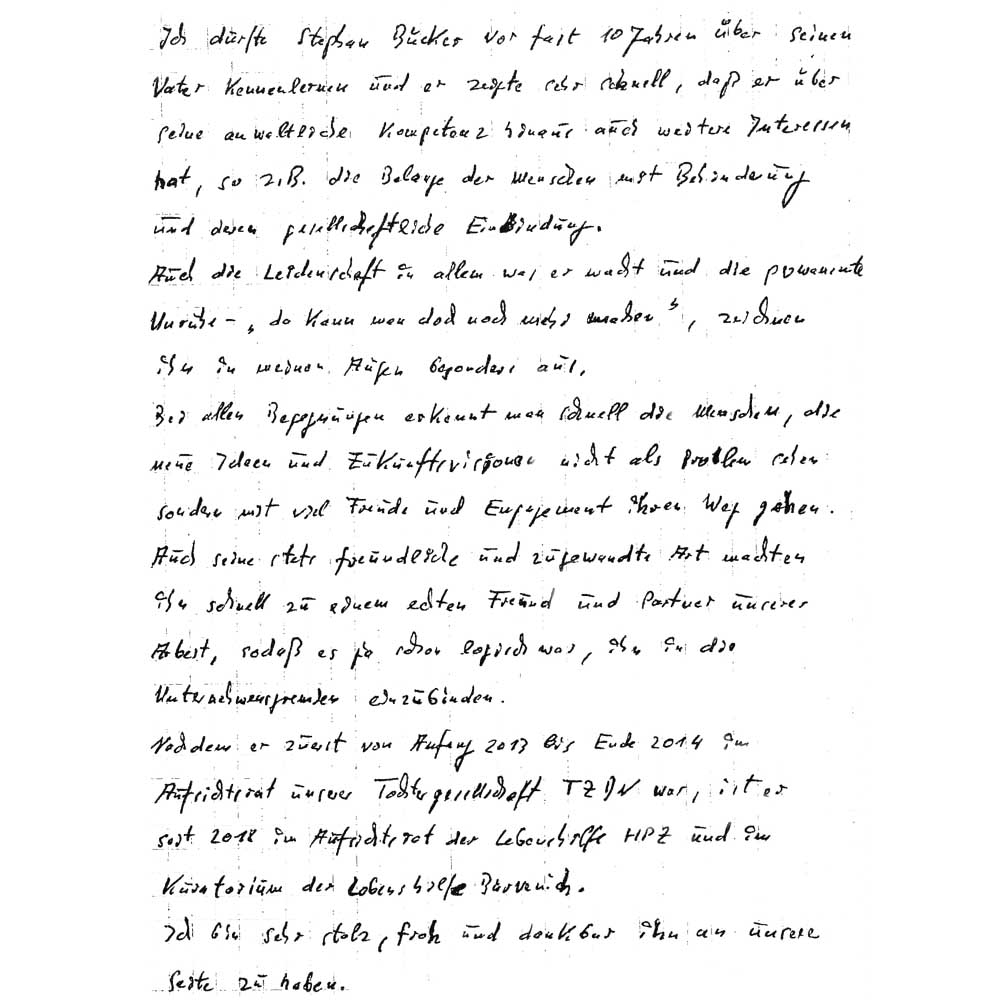 Ich durfte Stephan Bücker vor fast 10 Jahren über seinen
Vater Kennenlernen und er zeigte sehr schnell, daß er über
seine anwaltliche Kompetenz hinaus auch weitere Interessen
hat, so z.B. die Belange der Menschen mit Behinderung
und deren gesellschaftliche Einbindung.
Auch die Leidenschaft in allem was er macht und die permanente
Unruhe - „da kann man doch noch mehr machen", zeichnen
ihn in meinen Augen besonders aus.
Bei allen Begegnungen erkennt man schnell die Menschen, die
neue Ideen und Zukunftsvisionen nicht als Problem sehen
sondern mit viel Freude und Engagement ihren Weg gehen.
Auch seine stets freundliche und zugewandte Art machten
ihn schnell zu einem echten Freund und Partner unserer
Arbeit, sodaß es ja schon logisch war, ihn in die
Unternehmensgremien einzubinden.
Nachdem er zuerst von Anfang 2013 bis Ende 2014 im
Aufsichtsrat unserer Tochtergesellschaft TZDN war, ist er
seit 2018 im Aufsichtsrat der Lebenshilfe HPZ und im
Kuratorium der Lebenshilfe Bürvenich.
Ich bin sehr stolz, froh und dankbar ihn an unsere
Seite zu haben.